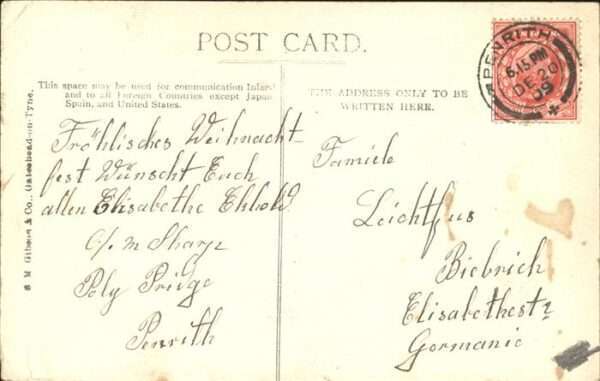 POST CARD.
This space may be used for communication Inland
and to all Foreign Countries except Japan
Spain, and United States.
THE ADDRESS ONLY TO BE
WRITTEN HERE.
PENRITH
6.15 PM
DE 20
09
S M Gibson & Co., Gateshead-on-Tyne.
Fröhlisches Weihnacht-
fest Wünscht Euch
allen Elisabethe
c/o m Sharp
Penrith
Familie
Leichtfus
Biebrich
Elisabethestr
Germanie